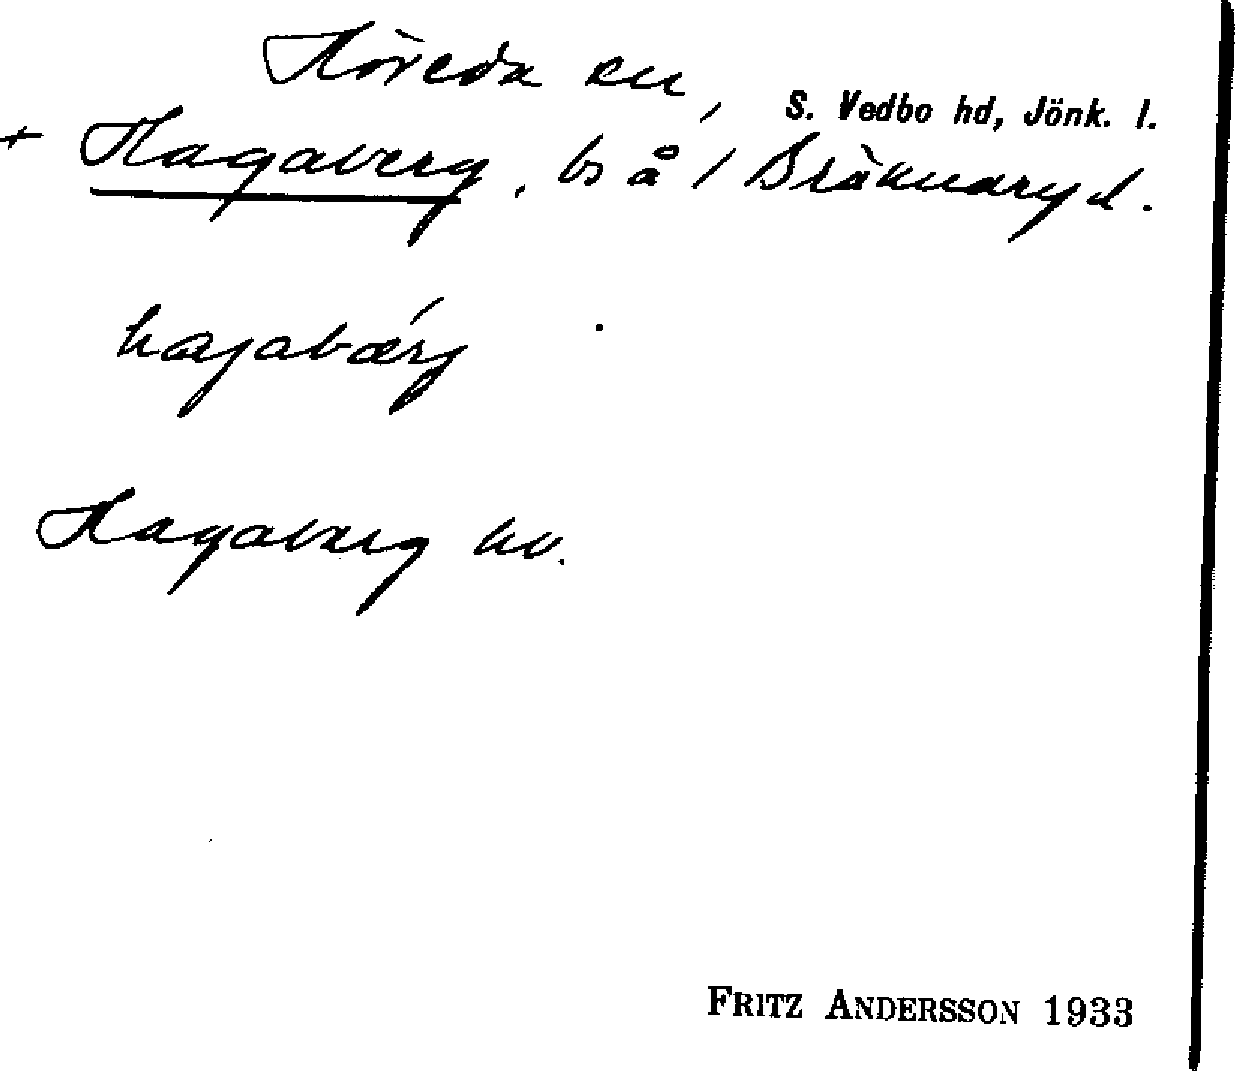 Höreda sn,
S. Vedbo hd, Jönk. l.
+ Hagaberg, bs å / Bräknaryd.
hagabærg
Hagaberg kv.
FRITZ ANDERSSON 1933